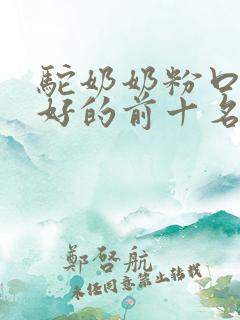 駝奶奶粉口
好的前十名
鄭啓航
未经同意禁止转载